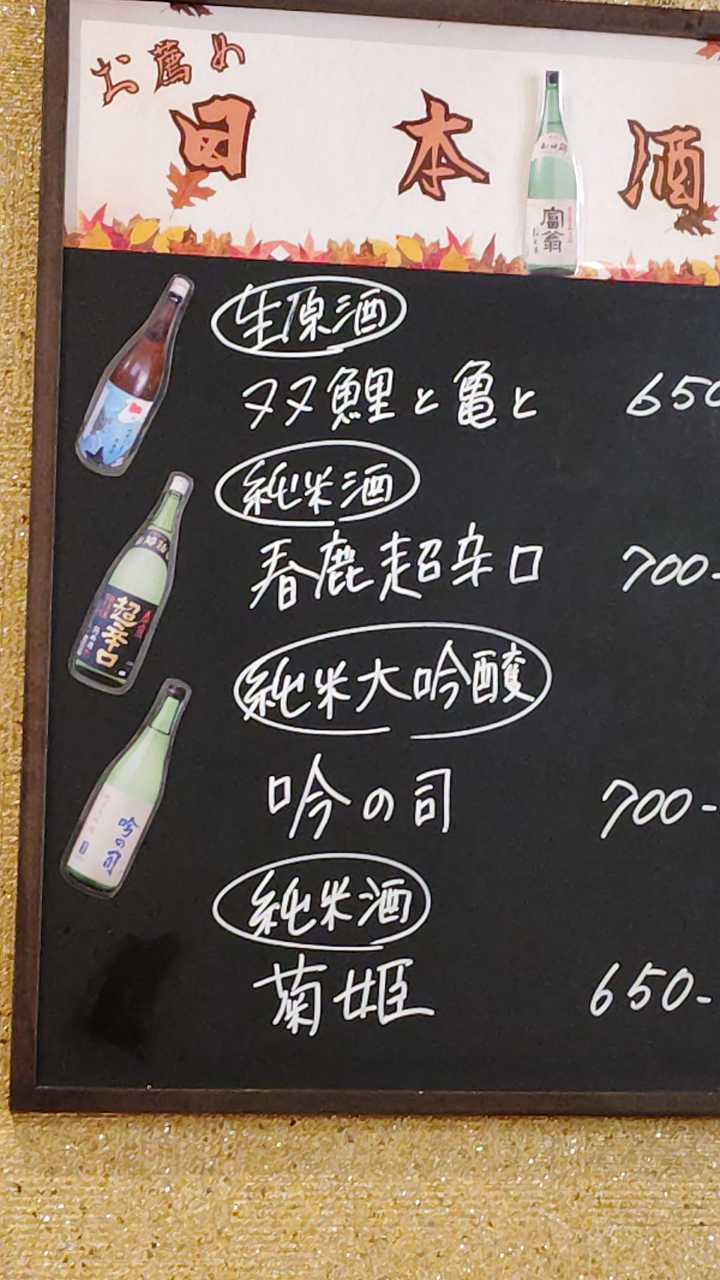 お薦め
日本酒
富翁
生原酒
双鯉と亀と 650
純米酒
春鹿超辛口 700-
超辛口
純米大吟醸
吟の司 700-
吟の司
純米酒
菊姫 650-